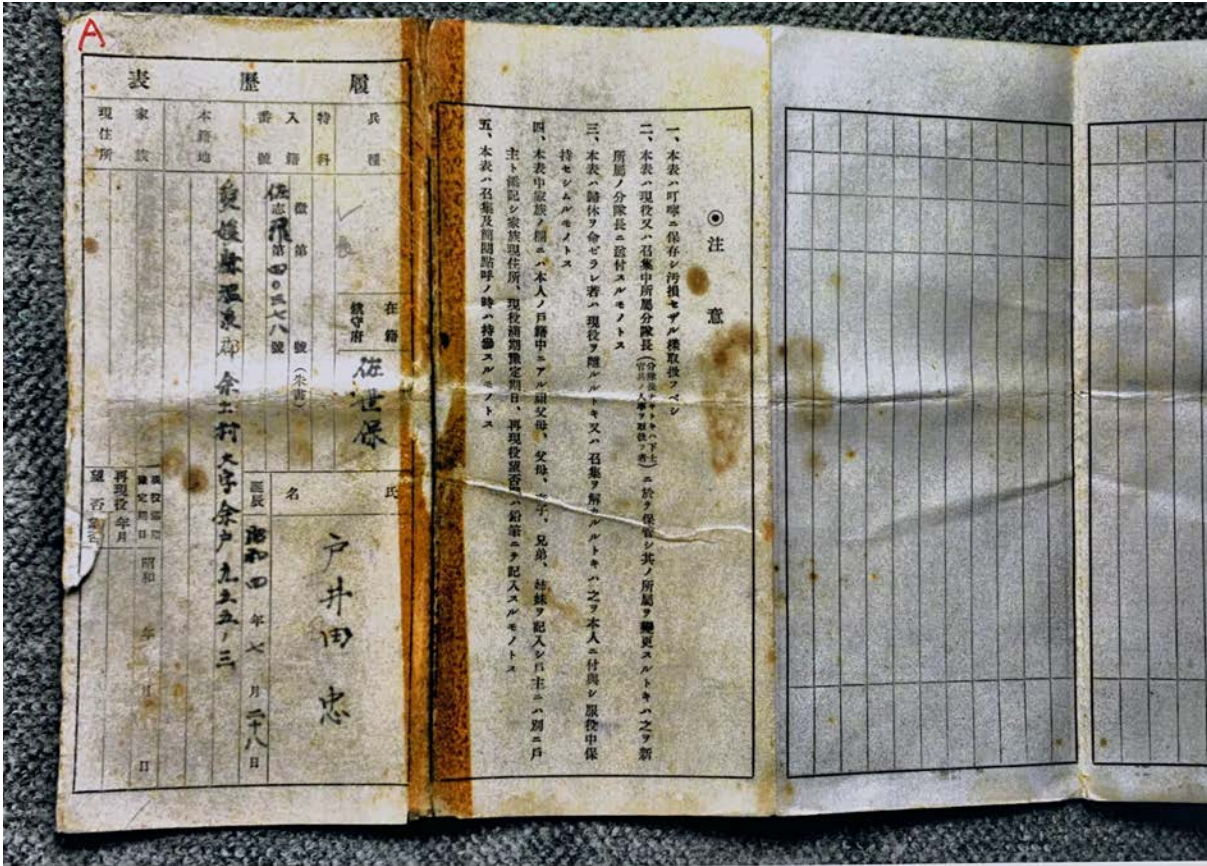 A
履歴表
兵種
特科
入籍番號
徴第　　號(朱書)
佐志飛第四〇三七八號
本籍地
愛媛縣溫泉郡余土村大字余戸九五五ノ三
家族
現住所
在籍鎭守府
佐世保
氏名
戸井田忠
誕辰
昭和四年七月二十八日
昭和　年　月　日
再現役年月
望否
◉注意
一、本表ハ叮嚀ニ保存シ汚損セザル樣取扱フベシ
二、本表ハ現役又ハ召集中所屬分隊長ニ於テ保管シ其ノ所屬ヲ變更スルトキハ之ヲ新
所屬ノ分隊長ニ送付スルモノトス
三、本表ハ歸休ヲ命ゼラレ若ハ現役ヲ離ルルトキ又ハ召集ヲ解カルルトキハ之ヲ本人ニ付與シ服役中保
持セシムルモノトス
四、本表中家族ノ欄ニハ本人ノ戸籍中ニアル祖父母、父母、妻子、兄弟、姉妹ヲ記入シ戸主ニハ別ニ戸
主ト傍記シ家族現住所、現役滿期豫定期日、再現役望否ハ鉛筆ニテ記入スルモノトス
五、本表ハ召集及簡閲點呼ノ時ハ持參スルモノトス